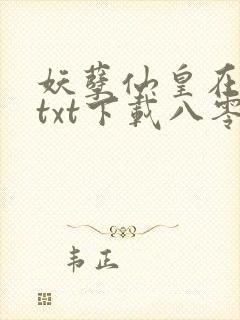 妖孽仙皇在
txt下载八零
韦正